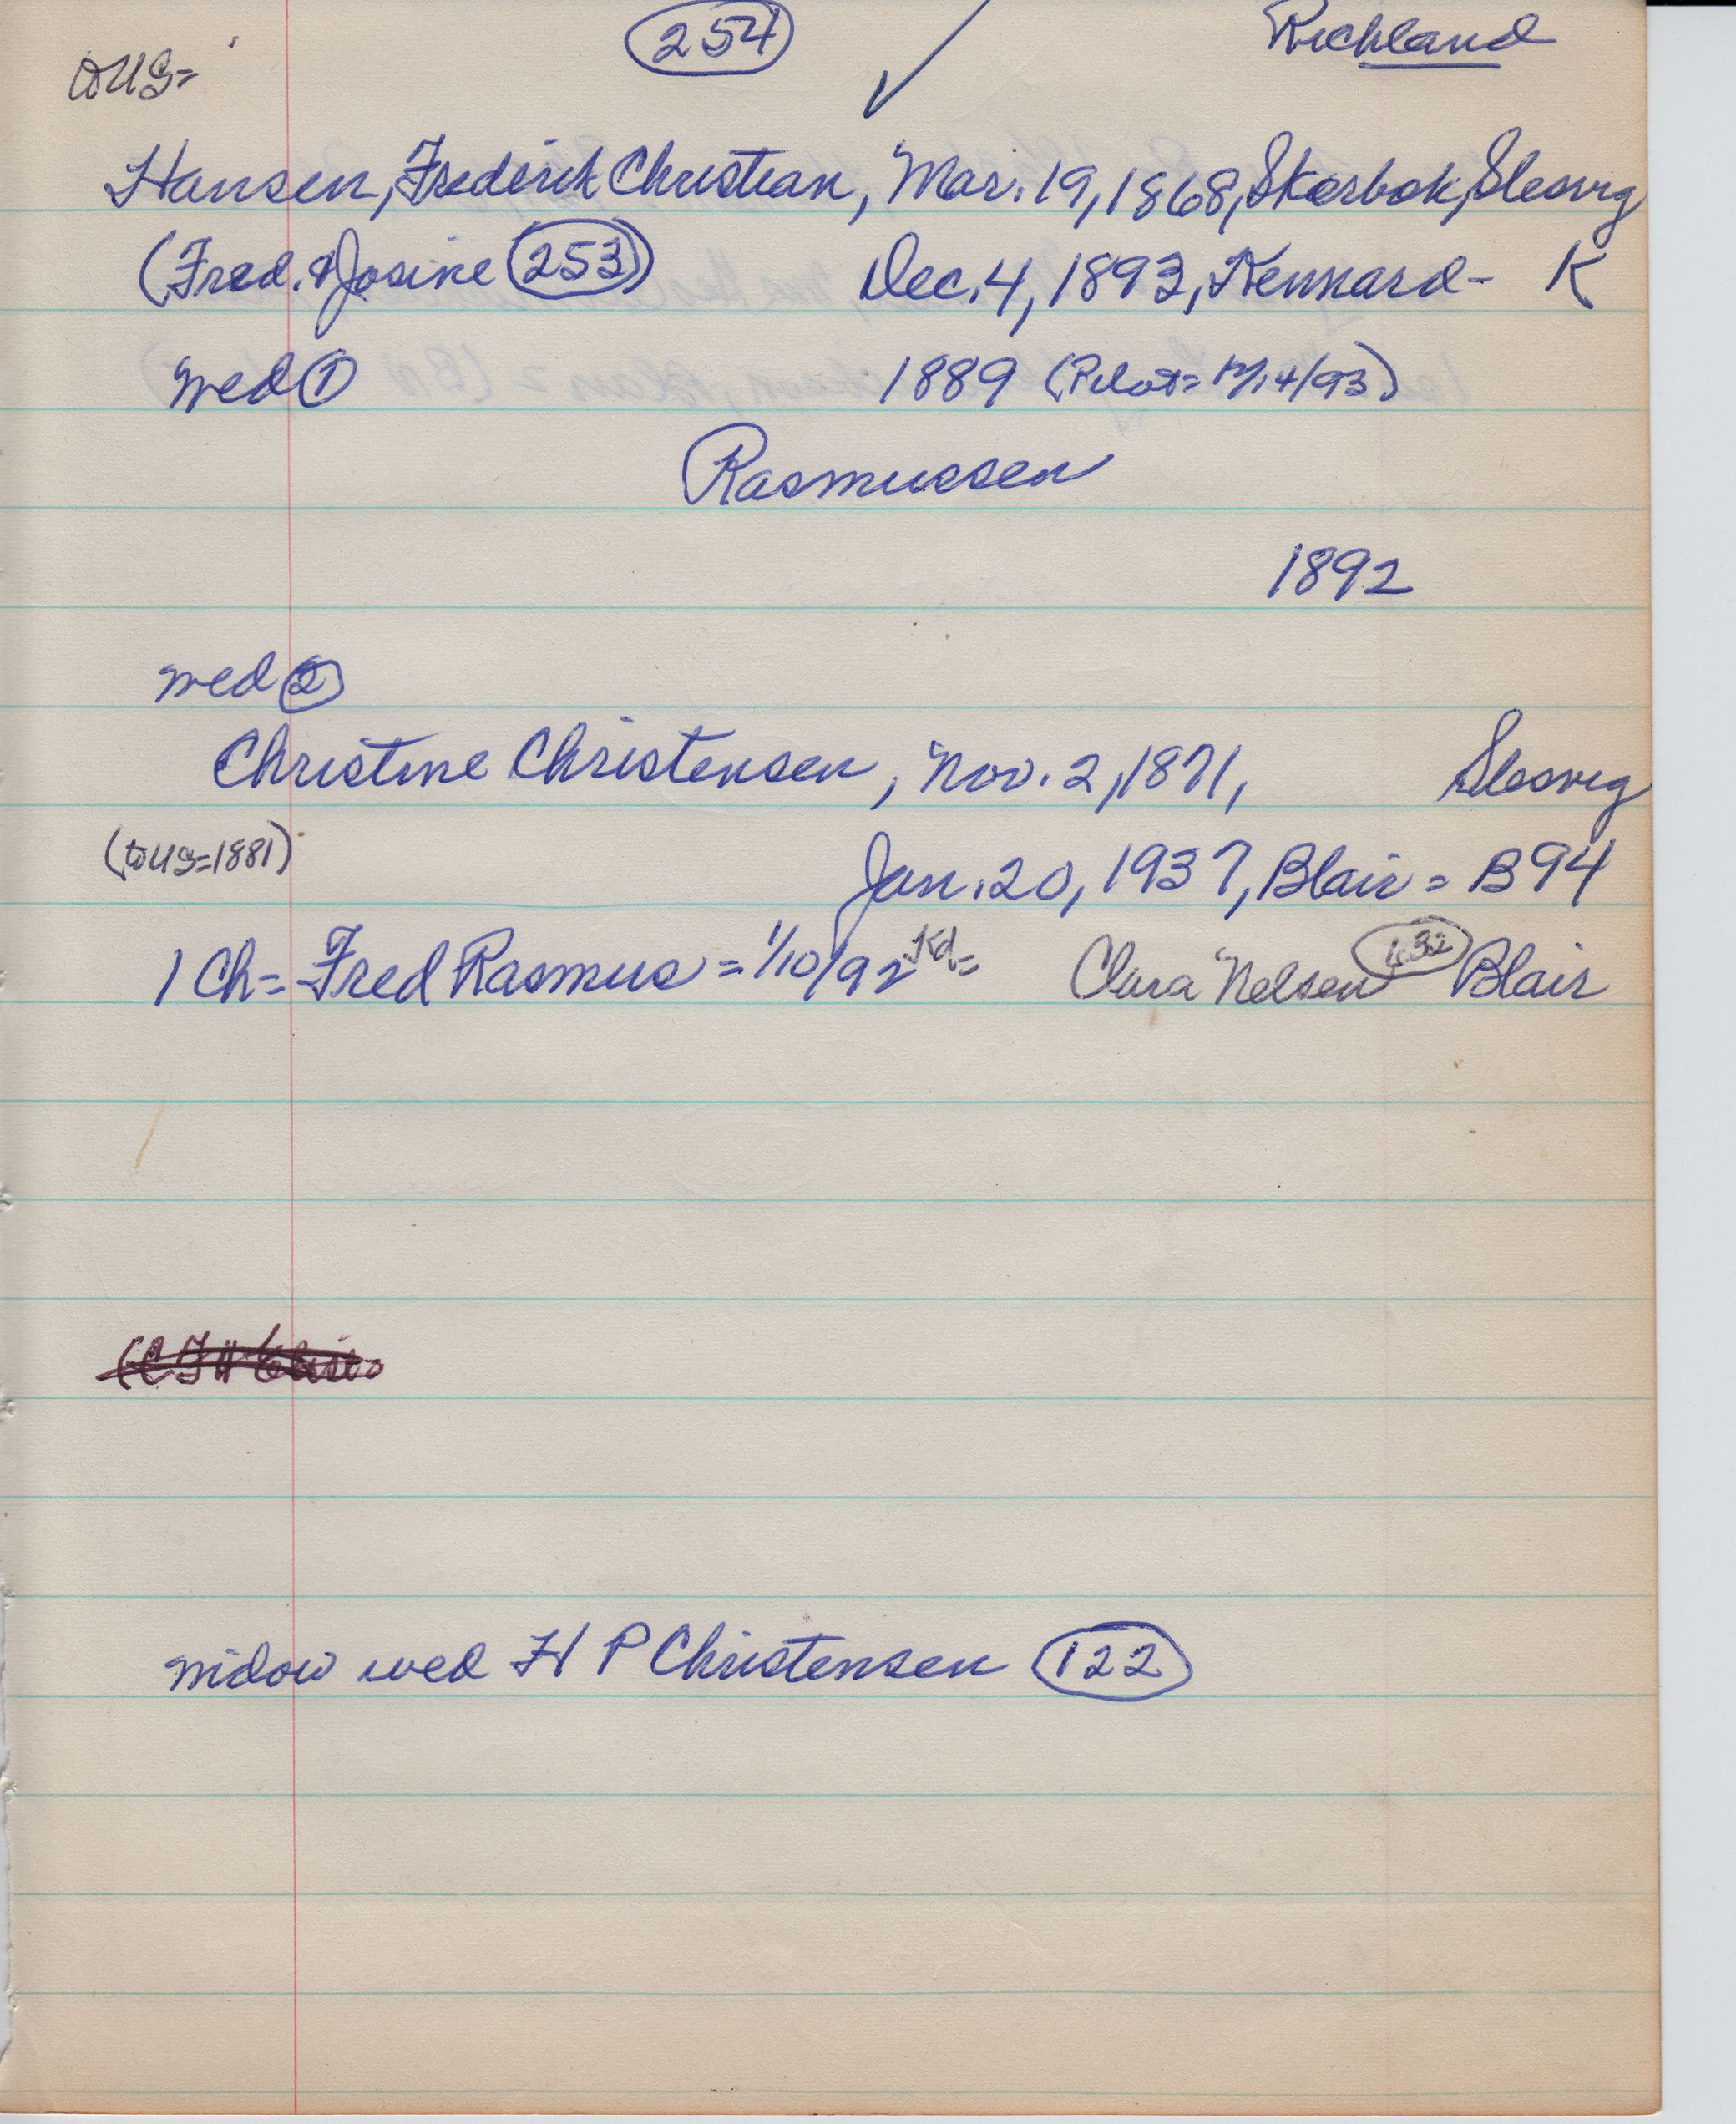 254 Richland
to US=
Hansen, Frederick Christian, Mar. 19, 1868, Skærbæk, Slesvig
(Fred. & Josine 253) Dec. 4, 1893, Kennard- K
wed 1 1889 (Pilot= 12/14/93)
Rasmussen
1892
wed 2
Christine Christensen, Nov. 2, 1871, Slesvig
(to US=1881)
Jan. 20, 1937, Blair= B94
1 Ch= Fred Rasmus= 1/10/92 Kd= Clara Nelsen Blair
widow wed H P Christensen 122